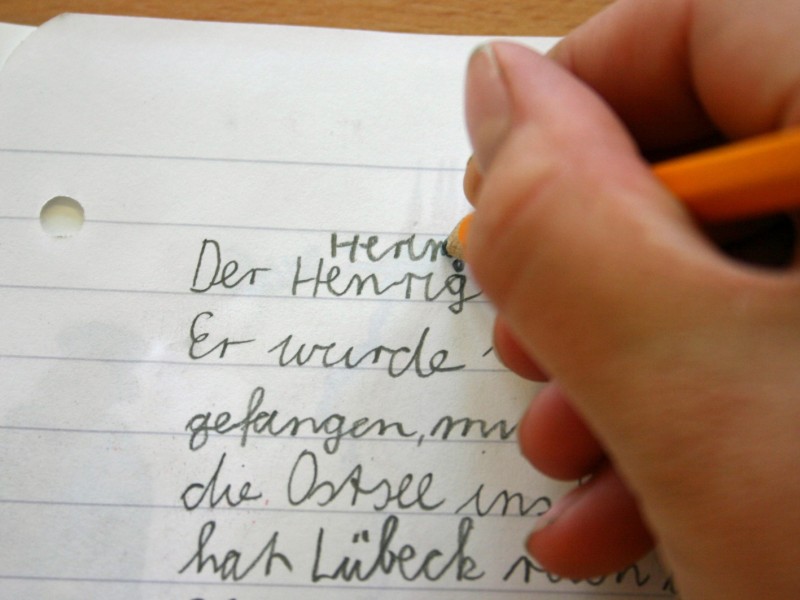 Herin
Der Henrig
Er wurde
gefangen, mi
die Ostsee ins
hat Lübeck